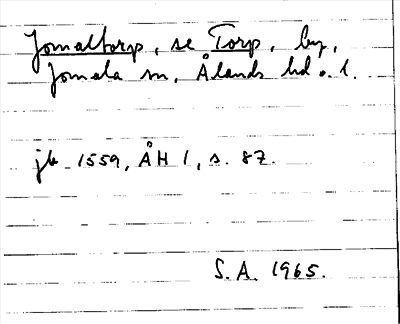 Jomaltorp, se Torp, by,
Jomala sn, Ålands hd o. l.
jb 1559, ÅH 1, s. 87.
S.A. 1965.